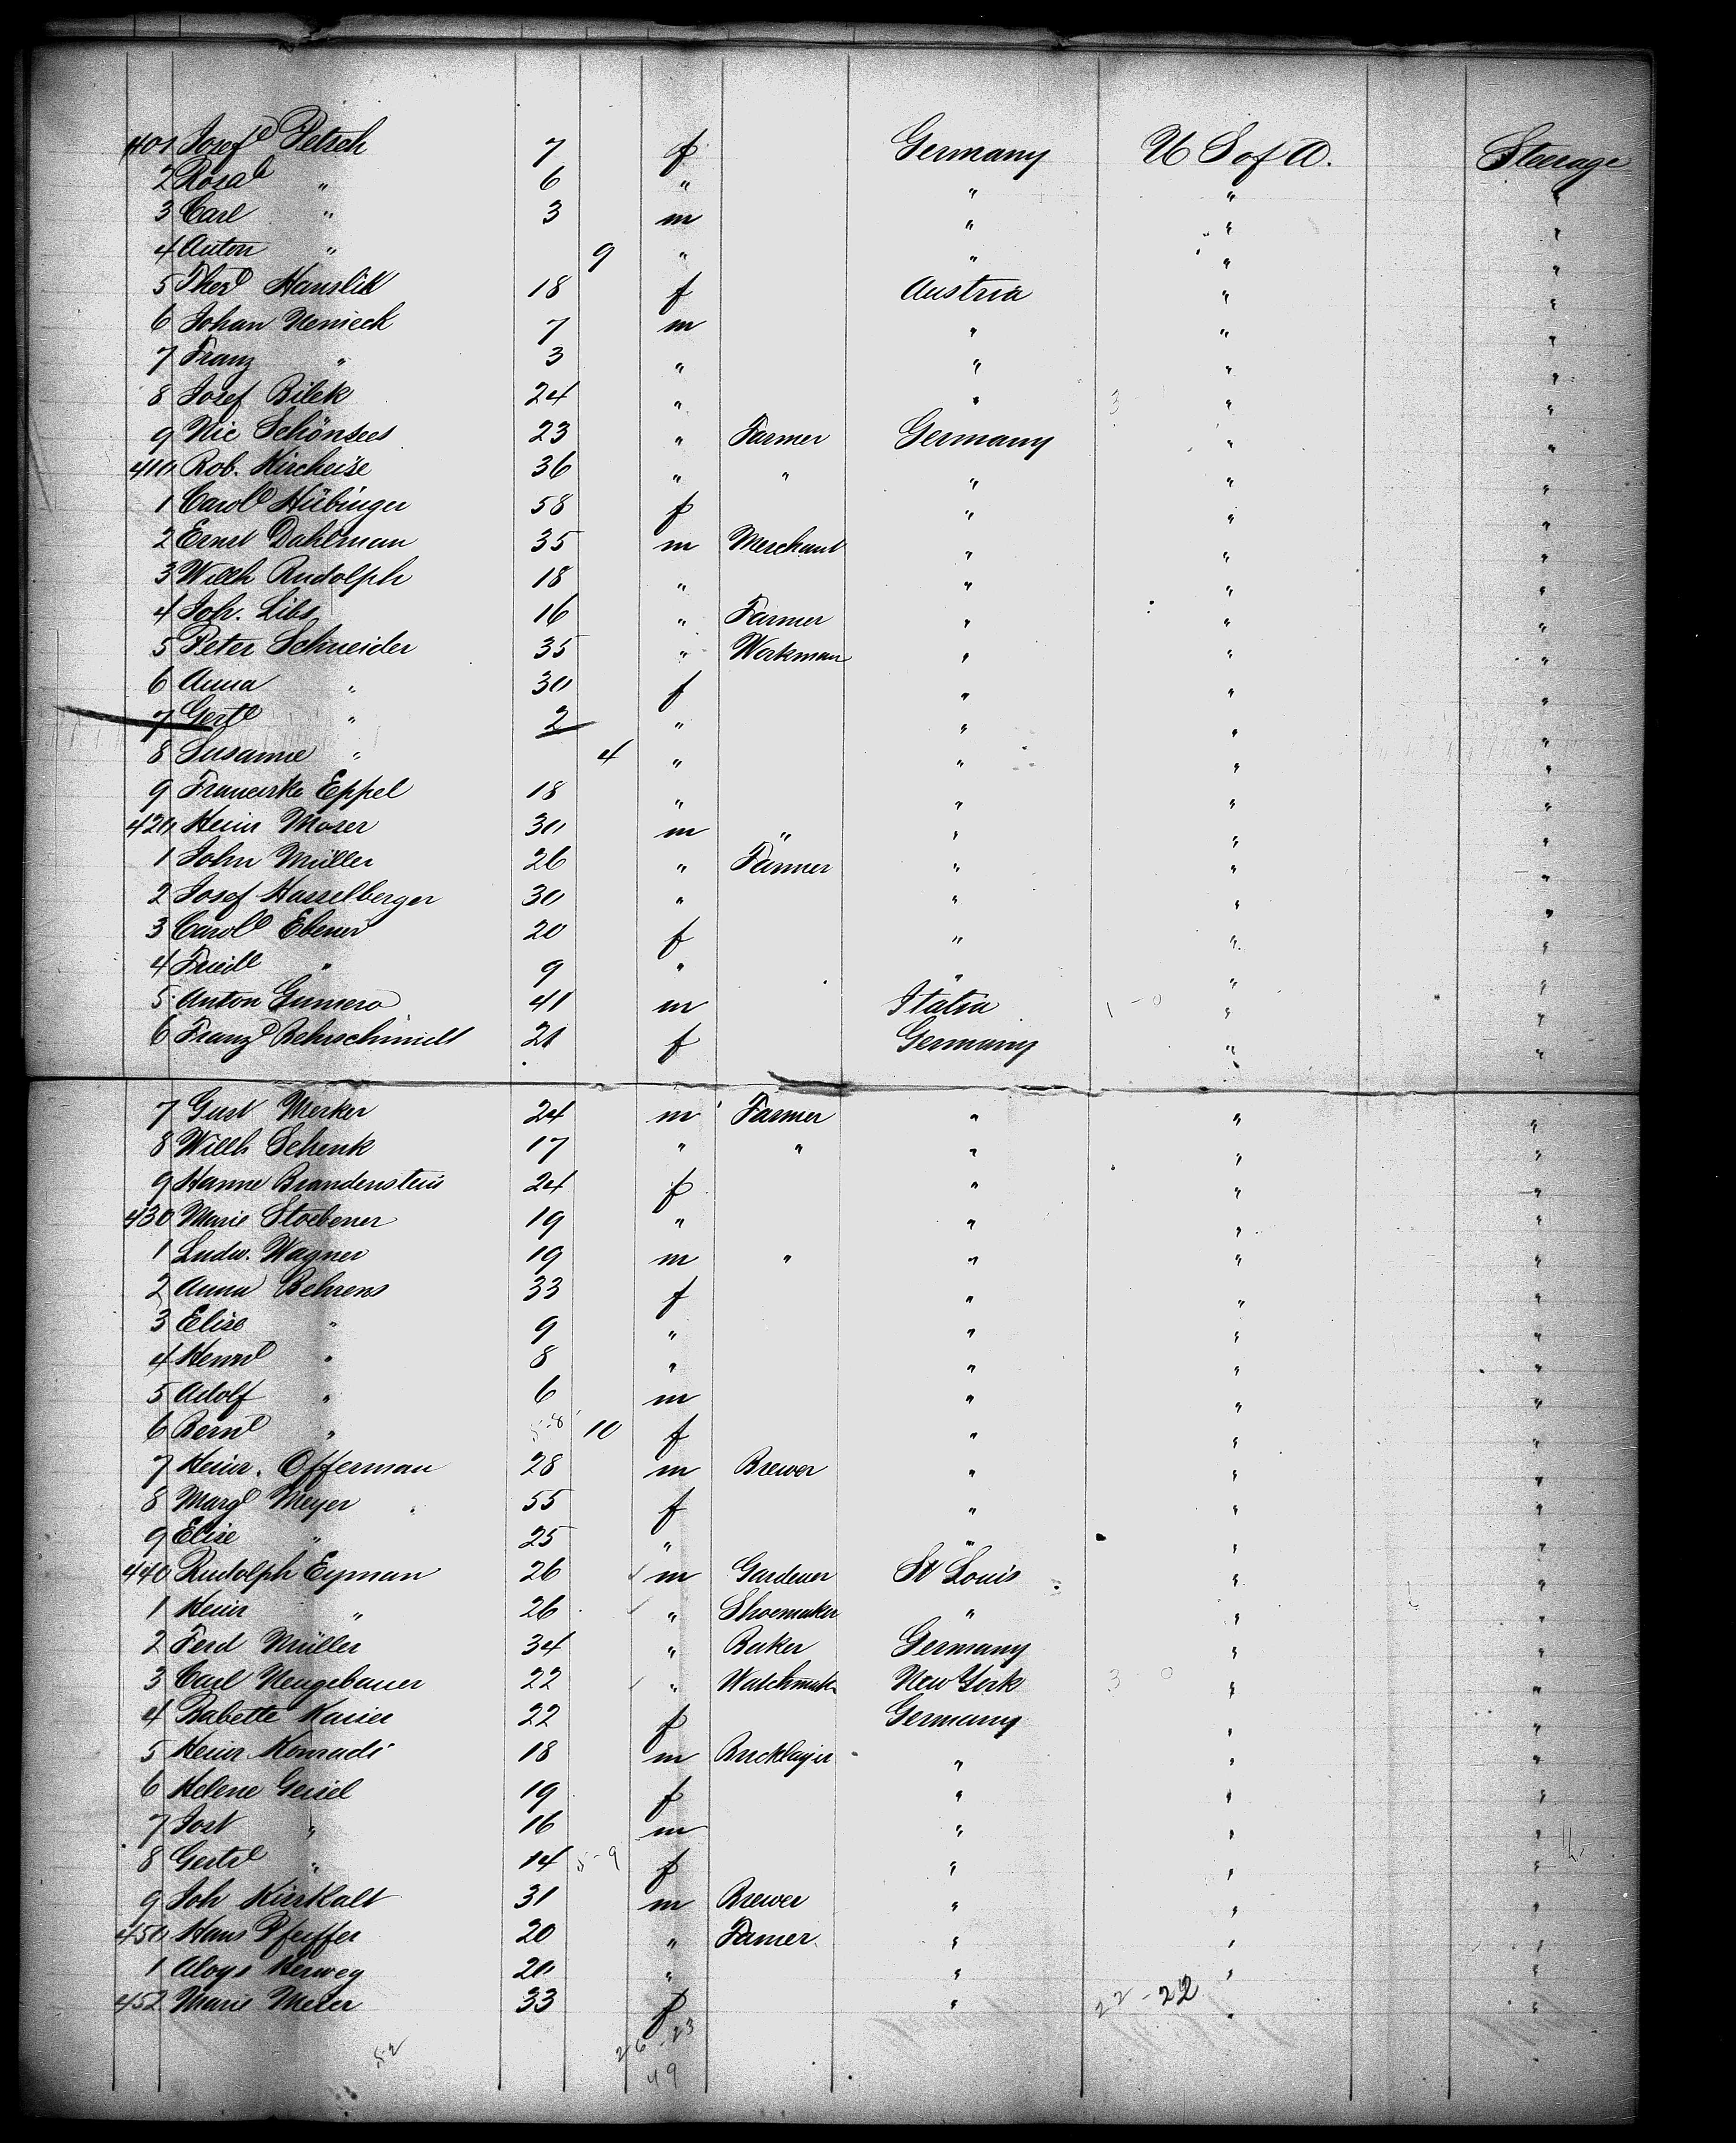 401 Josefe Petsch 7 f Germany U S of A. Steerage
2 Rosal " 6 " " " "
3 Carl " 3 m " " "
4 Anton " 9 " " " "
5 Ther Hanslik 18 f Austria " "
6 Johan Nemeck 7 m " " "
7 Franz " 3 " " " "
8 Josef Bilek 24 " " " "
9 Nic Schönsees 23 " Farmer Germany " "
410 Rob. Kircheise 36 " " " " "
1 Carole Hübinger 58 f " " "
2 Ernst Dahlman 35 m Merchant " " "
3 Willh Rudolph 18 " " " "
4 Joh. Libs 16 " Farmer " " "
5 Peter Schneider 35 " Workman " " "
6 Anna " 30 f " " "
7 Gerte " 2 " " " "
8 Susanne " 4 " " " "
9 Franciska Eppel 18 " " " "
420 Heinr Moser 30 m " " " "
1 John Müller 26 " Farmer " " "
2 Josef Hasselberger 30 " " " "
3 Carole Ebener 20 f " " "
4 Friedle " 9 " " " "
5 Anton Gumero 41 m Italia 1 - 0 " "
6 Franze Rehrschmidt 21 f Germany " "
7 Gust Merker 24 m Farmer " " "
8 Willh Schenk 17 " " " " "
9 Hanne Brandenstein 24 f " " "
430 Marie Stoebener 19 " " " "
1 Ludw. Wagner 19 m " " " "
2 Anna Behrens 33 f " " "
3 Elise " 9 " " " "
4 Henre " 8 " " " "
5 Adolf " 6 m " " "
6 Berne " 5-8 10 f " " "
7 Heinr. Offerman 28 m Brewer " " "
8 Marge Meyer 55 f " " "
9 Elise " 25 " " " "
440 Rudolph Eyman 26 m Gardener St Louis " "
1 Heinr " 26 " Shoemaker " " "
2 Ferd Müller 34 " Baker Germany " "
3 Carl Neugebauer 22 " Watchmak New York 3 - 0 " "
4 Babette Kaiser 22 f Germany " "
5 Heinr Konradi 18 m Bricklayer " " "
6 Helene Geisel 19 f " " "
7 Jost " 16 m " " "
8 Gertre " 14 5-9 f " " "
9 Joh Kirskalt 31 m Brewer " " "
450 Hans Pfeiffer 20 " Famer " " "
1 Aloys Herweg 20 " " " "
452 Marie Meier 33 f " 22-22 " "
52 26-23
49